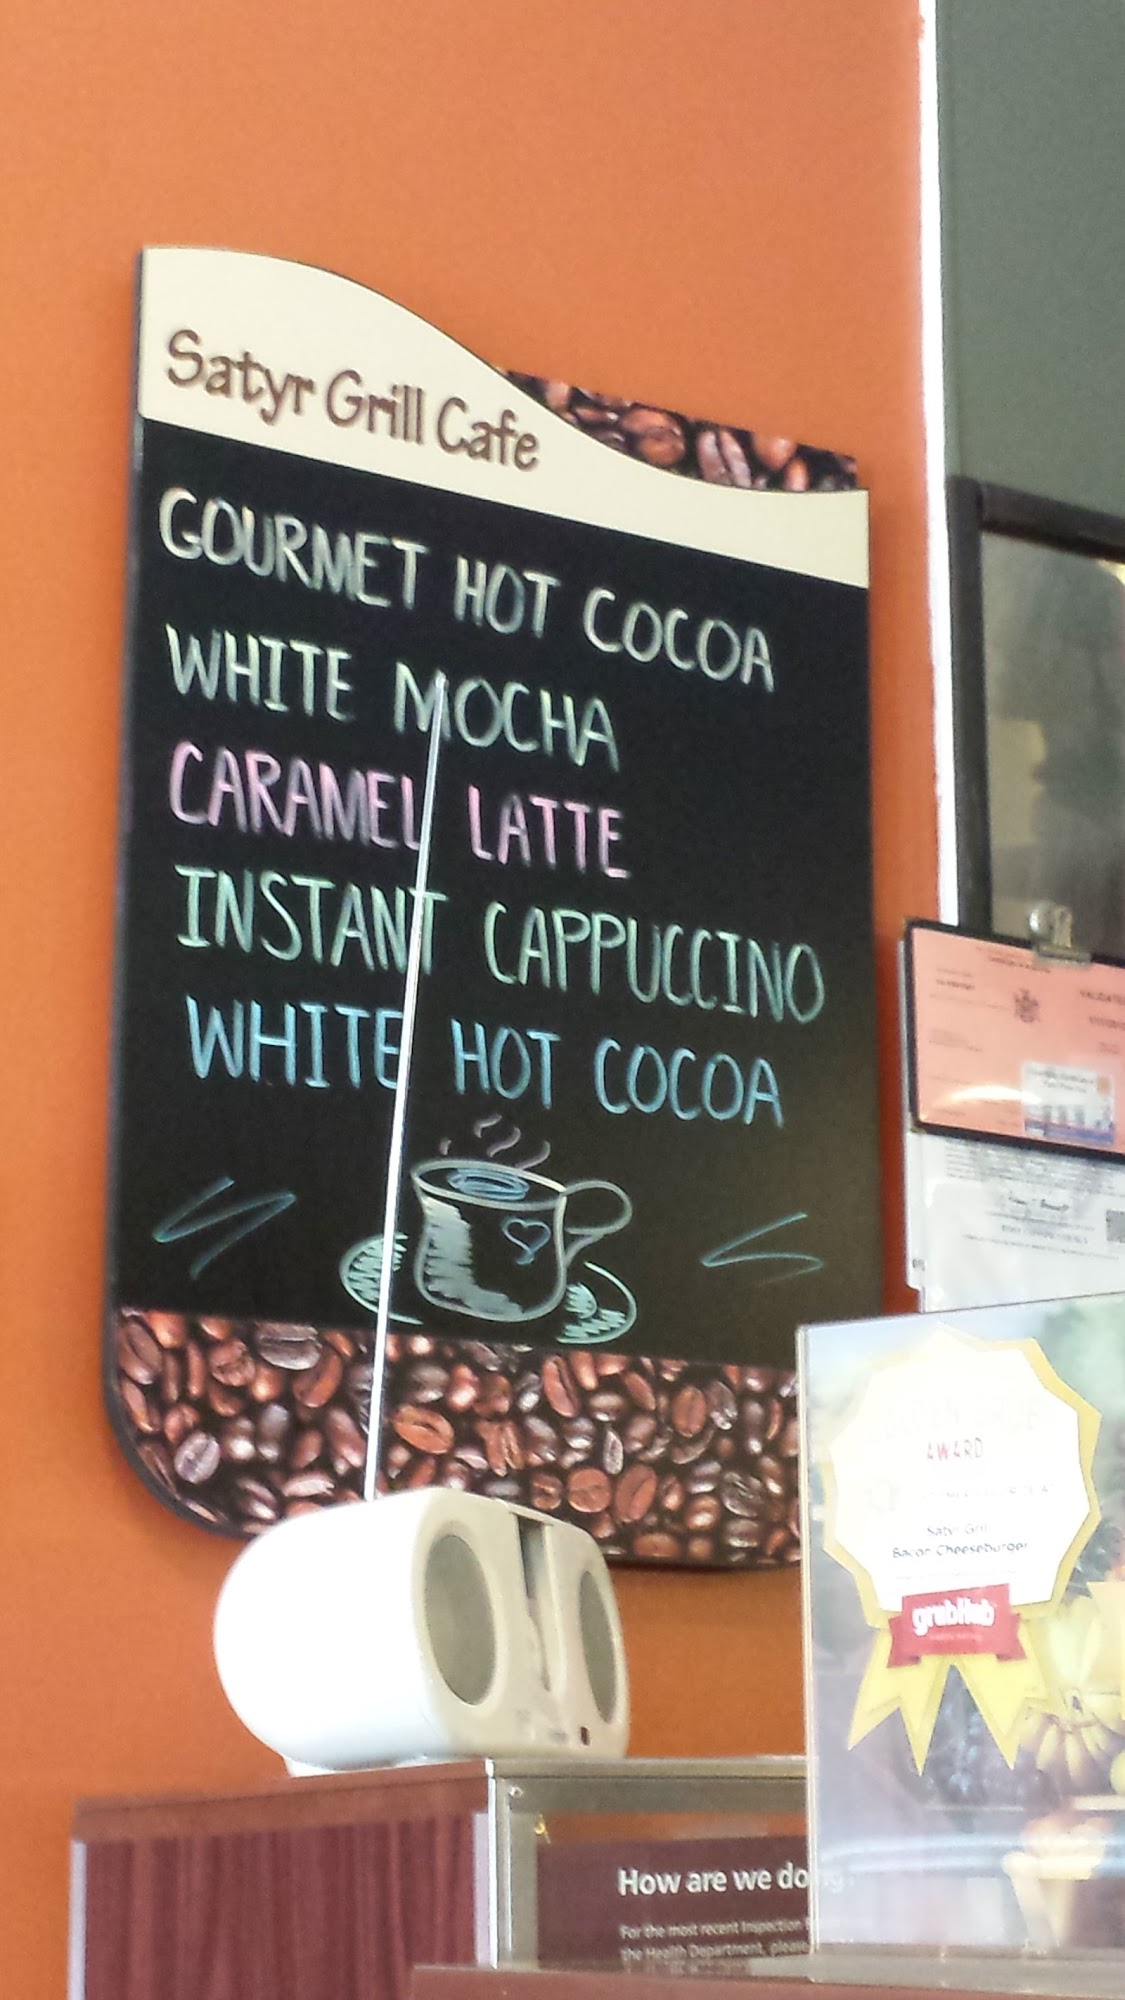 Satyr Grill Cafe
GOURMET HOT COCOA
WHITE MOCHA
CARAMEL LATTE
INSTANT CAPPUCCINO
WHITE HOT COCOA
AWARD
Satyr Grill
Bacon Cheeseburger
grubHub
How are we doing?
For the most recent Inspection
the Health Department, please